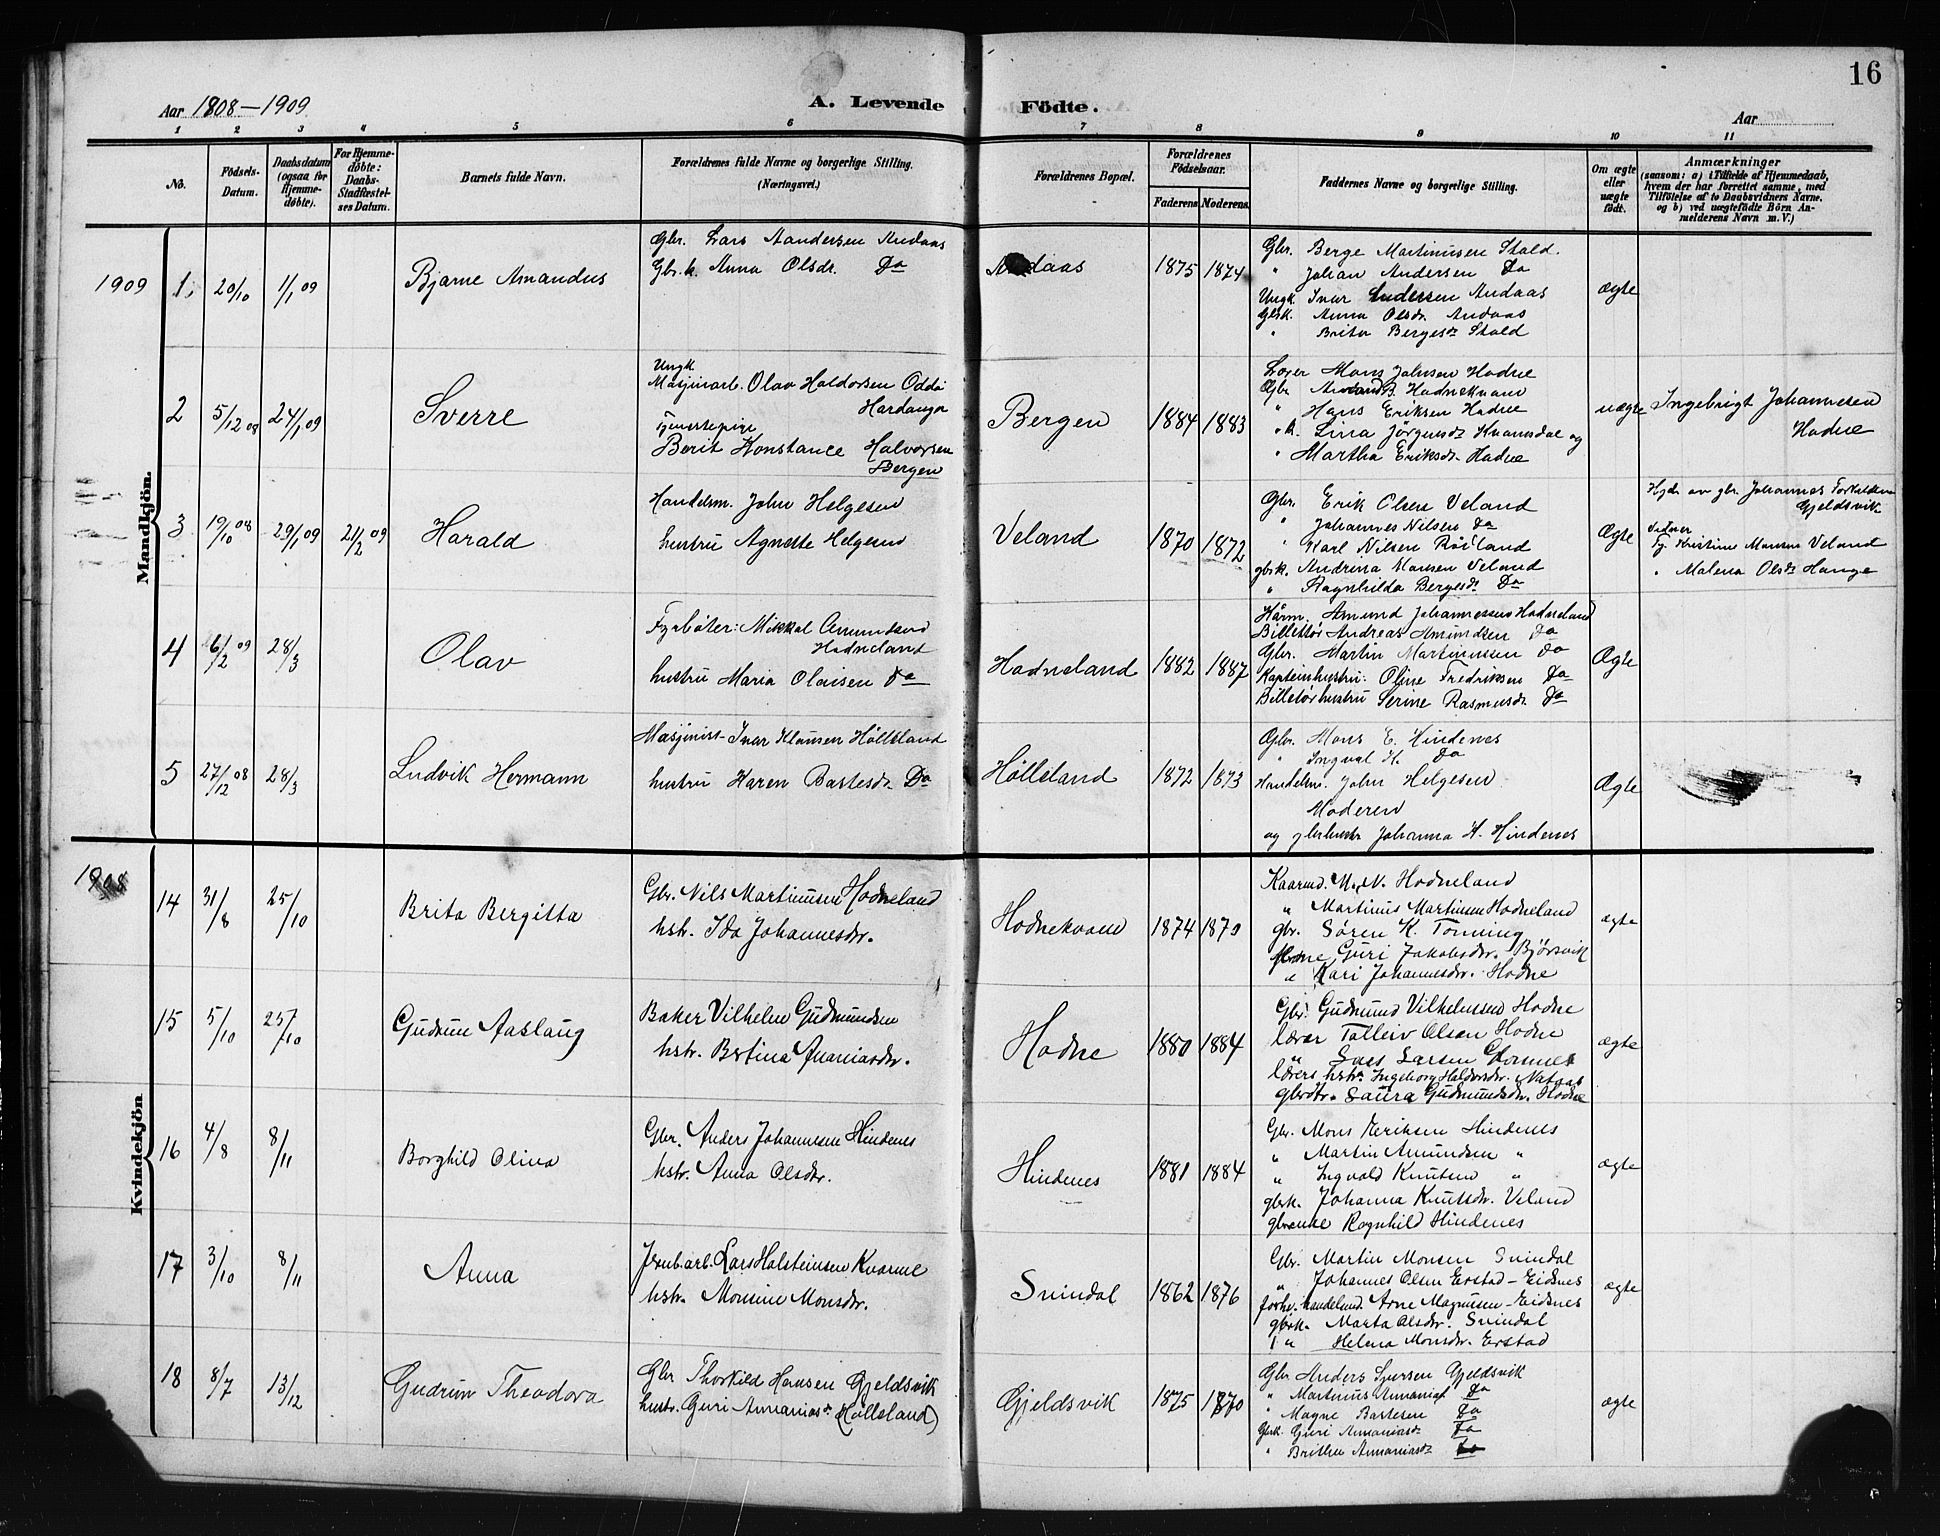 16
Aar 1808-1909
A. Levende Födte.
Aar
1 2 3 4 5 6 7 8 9 10 11
No.
Födsels-Datum.
Daabsdatum (ogsaa for Hjemme-döbte).
For Hjemme-döbte: Daabs-Stadfæstel-ses Datum.
Barnets fulde Navn.
Forældrenes fulde Navne og borgerlige Stilling. (Næringsvei.)
Forældrenes Bopæl.
Forældrenes Födselsaar.
Faderens. Moderens.
Faddernes Navne og borgerlige Stilling.
Om ægte eller uægte födt.
Anmærkninger
(saasom: a) i Tilfælde af Hjemmedaab,
hvem der har forrettet samme, med
Tilföielse af to Daabsvidners Navne,
og b) ved uægtefødte Börn An-
melderens Navn m. V.)
Mandkjön.
1909 1. 20/10 1/1 09 Bjarne Amandus
Gbr. Lars Aandersen Andaas
Gbr.k. Anna Olsdr. Do
Andaas 1875 1874
Gbr. Berge Martinusen Stald.
" Johan Andersen Do
Ungk. Ivar Andersen Andaas
Gbrk. Anna Olsdr. Andaas
" Brita Bergesdr Stald
Ægte
2 5/12 08 24/1 09 Sverre
Ungk
Masjinarb. Olav Haldorsen Odda
Hardanger
Tjenestepige
Berit Konstance Halvorsen
Bergen
Bergen 1884 1883
Lærer Mons Johnsen Hodne
Gbr. B. Hodnekvam
" Hans Eriksen Hodne
" k. Lina Jörgensdr Kvamsdal og
" Martha Eriksdr. Hodne
uægte
Ingebrigt Johannesen
Hodne
3 19/10 08 29/1 09 21/2 09 Harald
Handelsm. John Helgesen
hustru Agnethe Helgesen
Veland 1870 1872
Gbr. Erik Olsen Veland
" Johannes Nilsen Do
" Karl Nilsen
gbrk. Andrina Hansen Veland
" Ragnhilda Bergesdr Do
Ægte
Hjdr. av gbr. Johannes
Gjeldsvik
Vidner
Tj. Kristine Monsen Veland
" Malena Olsdr Hauge
4 6/2 09 28/3 Olav
Fyrbøter: Mikkal Amundsen
Hodneland
hustru Maria Olaisen Do
Hodneland 1882 1887
Kårm. Amund Johannessen Hodneland
Billettør Andreas Amundsen Do
Gbr. Martin Martinussen Do
Kapteinhustru: Oline Fredriksen Do
Billetörhustru Serine Rasmusdr. Do
Ægte
5 27/12 08 28/3 Ludvik Hermann
Masjinist Ivar Klausen Höllsland
hustru Karen Bastesdr Do
Höllsland 1872 1873
Gbr. Mons E. Hindenes
" Ingval H. Do
Handelsm. John Helgesen
Moderen
og gbrhustr Johanna H. Hindenes
Ægte
Kvindekjön
1908
14 31/8 25/10 Brita Bergitta
Gbr. Nils Martinusen Hodneland
hstr. Ida Johannesdr.
Hodnekvam 1874 1870
Kaarmd. M. N. Hodneland
" Martinus Martinsen Hodneland
gbr. Søren K. Tonning
Guri Jakobsdr. Bjørsvik
" Kari Johannesdr. Hodne
ægte
15 5/10 25/10 Gudrun Aaslaug
Baker Vilhelm Gudmundsen
hstr. Bertina Ananiasdr.
Hodne 1880 1884
Gbr. Gudmund Vilhelmsen Hodne
lærer Tolleiv Olsen Hodne
" Lars Larsen
lærers hstr. Ingeborg Haldorsdr. Nataas
gbrdtr. Laura Gudmundsdr. Hodne
ægte
16 4/8 8/11 Borghild Olina
Gbr. Anders Johannesen Hindenes
hstr. Anna Olsdr.
Hindenes 1881 1884
Gbr. Mons Eriksen Hindenes
" Martin Amundsen "
" Ingvald Knutsen "
gbrk. Johanna Knutsdr. Veland
gbrenke Ragnhild Hindenes
ægte
17 3/10 8/11 Anna
Jernb.arb. Lars Holsteinsen Kvamme
hstr. Monsine Monsdr.
Svindal 1862 1876
Gbr. Martin Monsen Svindal
" Johannes Olsen Erstad-Eidsnes
forhv. handelsmd. Arne Magnusen-Eidsnes
gbrk. Marta Olsdr. Svindal
" Helena Monsdr. Erstad
ægte
18 8/7 13/12 Gudrun Theodora
Gbr Thorkild Hansen Gjeldsvik
hustr. Guri Annaniasdr (Höllsland)
Gjeldsvik 1875 1870
Gbr Anders Iversen Gjeldsvik
" Martinus Annanias Do
" Magne Bastesen Do
Gbrk. Guri Annaniasdr Do
" Brithe Annaniasdr Do
ægte